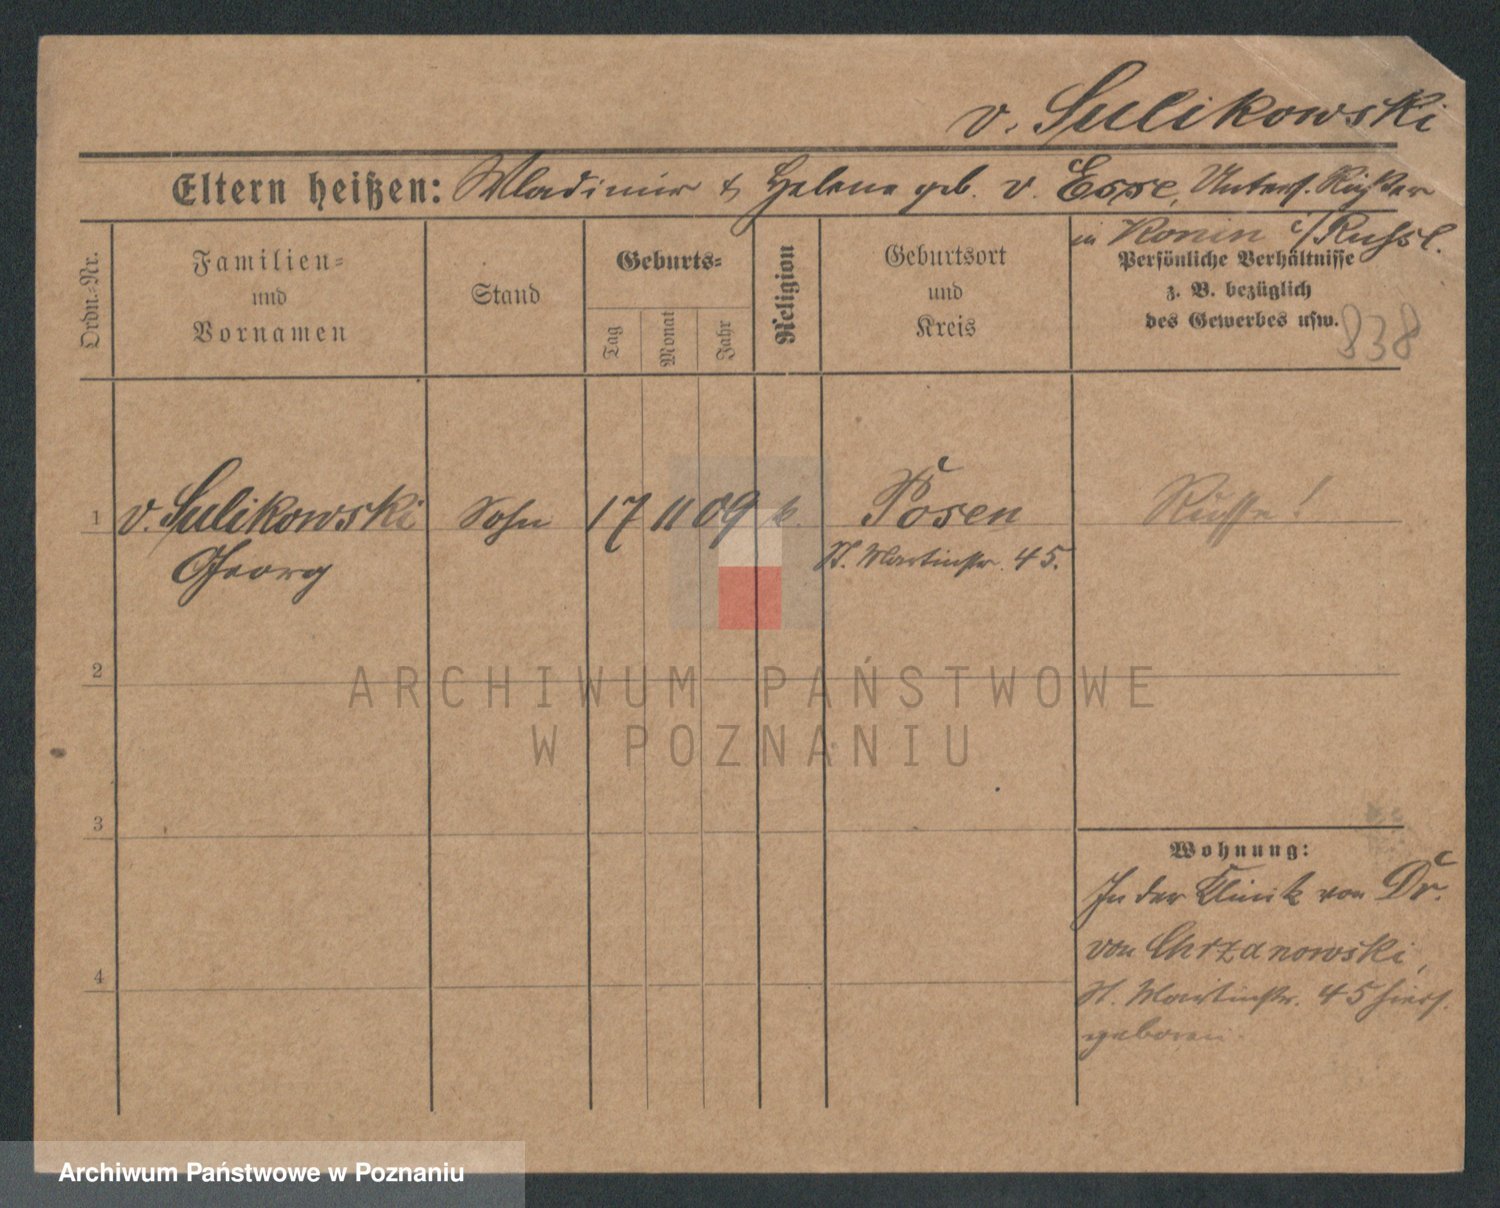 v. Sulikowski
Eltern heißen: Wladimir & Helene geb. v. Esse, Unters. Richter
in Konin i/Russl.
Ordn.-Nr.
Familien-
und
Vornamen
Stand
Geburts-
Tag
Monat
Jahr
Religion
Geburtsort
und
Kreis
Persönliche Verhältnisse
z. B. bezüglich
des Gewerbes usw.
838
1 v. Sulikowski Sohn 17 11 09 k. Posen Russe!
Georg St. Martinstr. 45.
2
ARCHIWUM PAŃSTWOWE
W POZNANIU
3
Wohnung:
In der Klinik von Dr.
von Chrzanowski,
4
St. Martinstr. 45 hiers.
geboren.
Archiwum Państwowe w Poznaniu